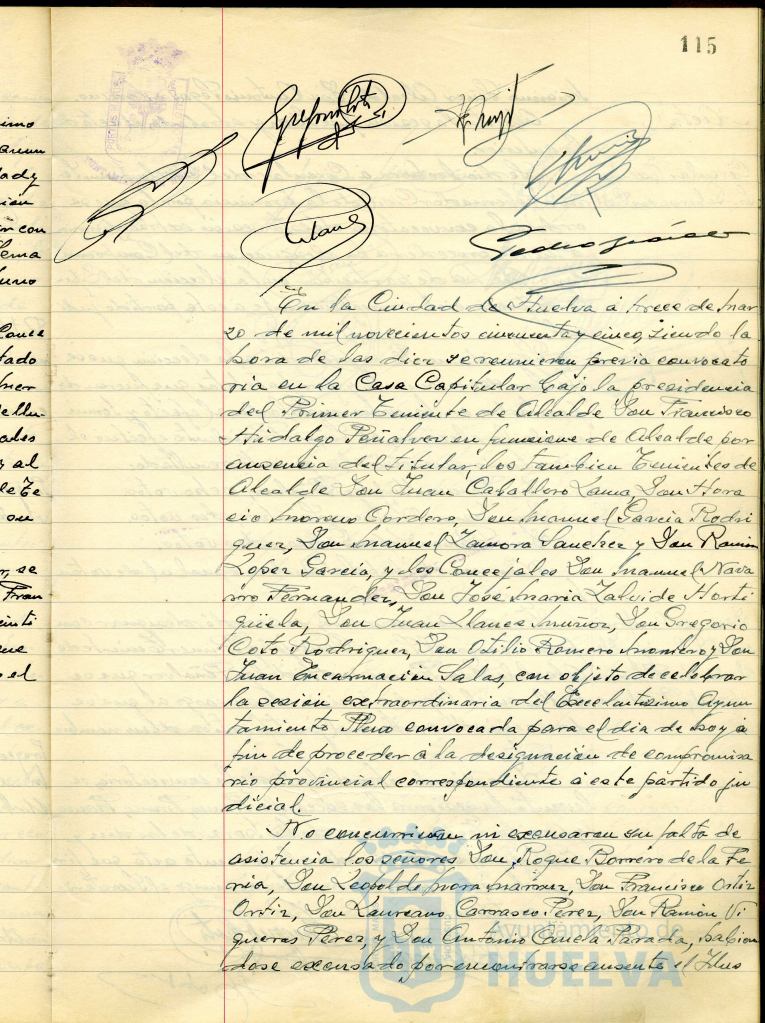 115
imo
ady
con
uno
tado
ales
y al
su
r, se
Fran
que
el
En la Ciudad de Huelva á trece de mar
zo de mil novecientos cincuenta y cinco, siendo la
hora de las diez se reunieron previa convocato
ria en la Casa Capitular bajo la presidencia
del Primer Teniente de Alcalde Don Francisco
Hidalgo Peñalver en funciones de Alcalde por
ausencia del titular, los tambien Tenientes de
Alcalde Don Juan Caballero Lama, Don Hora
cio Moreno Cordero, Don Manuel Garcia Rodri
guez, Don Manuel Zamora Sanchez y Don Ramon
Lopez Garcia, y los Concejales Don Manuel Nava
rro Fernandez, Don José Maria Zalvide Horti
güela, Don Juan Llanes Muñoz, Don Gregorio
Coto Rodriguez, Don Otilio Romero Montero y Don
Juan Encarnación Salas, con objeto de celebrar
la sesión extraordinaria del Excelentisimo Ayun
tamiento Pleno convocada para el dia de hoy á
fin de proceder á la designación de compromisa
rio provincial correspondiente á este partido ju
dicial.
No concurrieron ni excusaron su falta de
asistencia los señores Don Roque Borrero de la Fe
ria, Don Leopoldo Mora Don Francisco Ortiz
Ortiz, Don Laureano Carrasco Perez, Don Ramón Vi
gueras Pérez y Don Antonio Canela Parada, habien
dose excusado por encontrarse ausente el Ilus
Ayuntamiento de
HUELVA